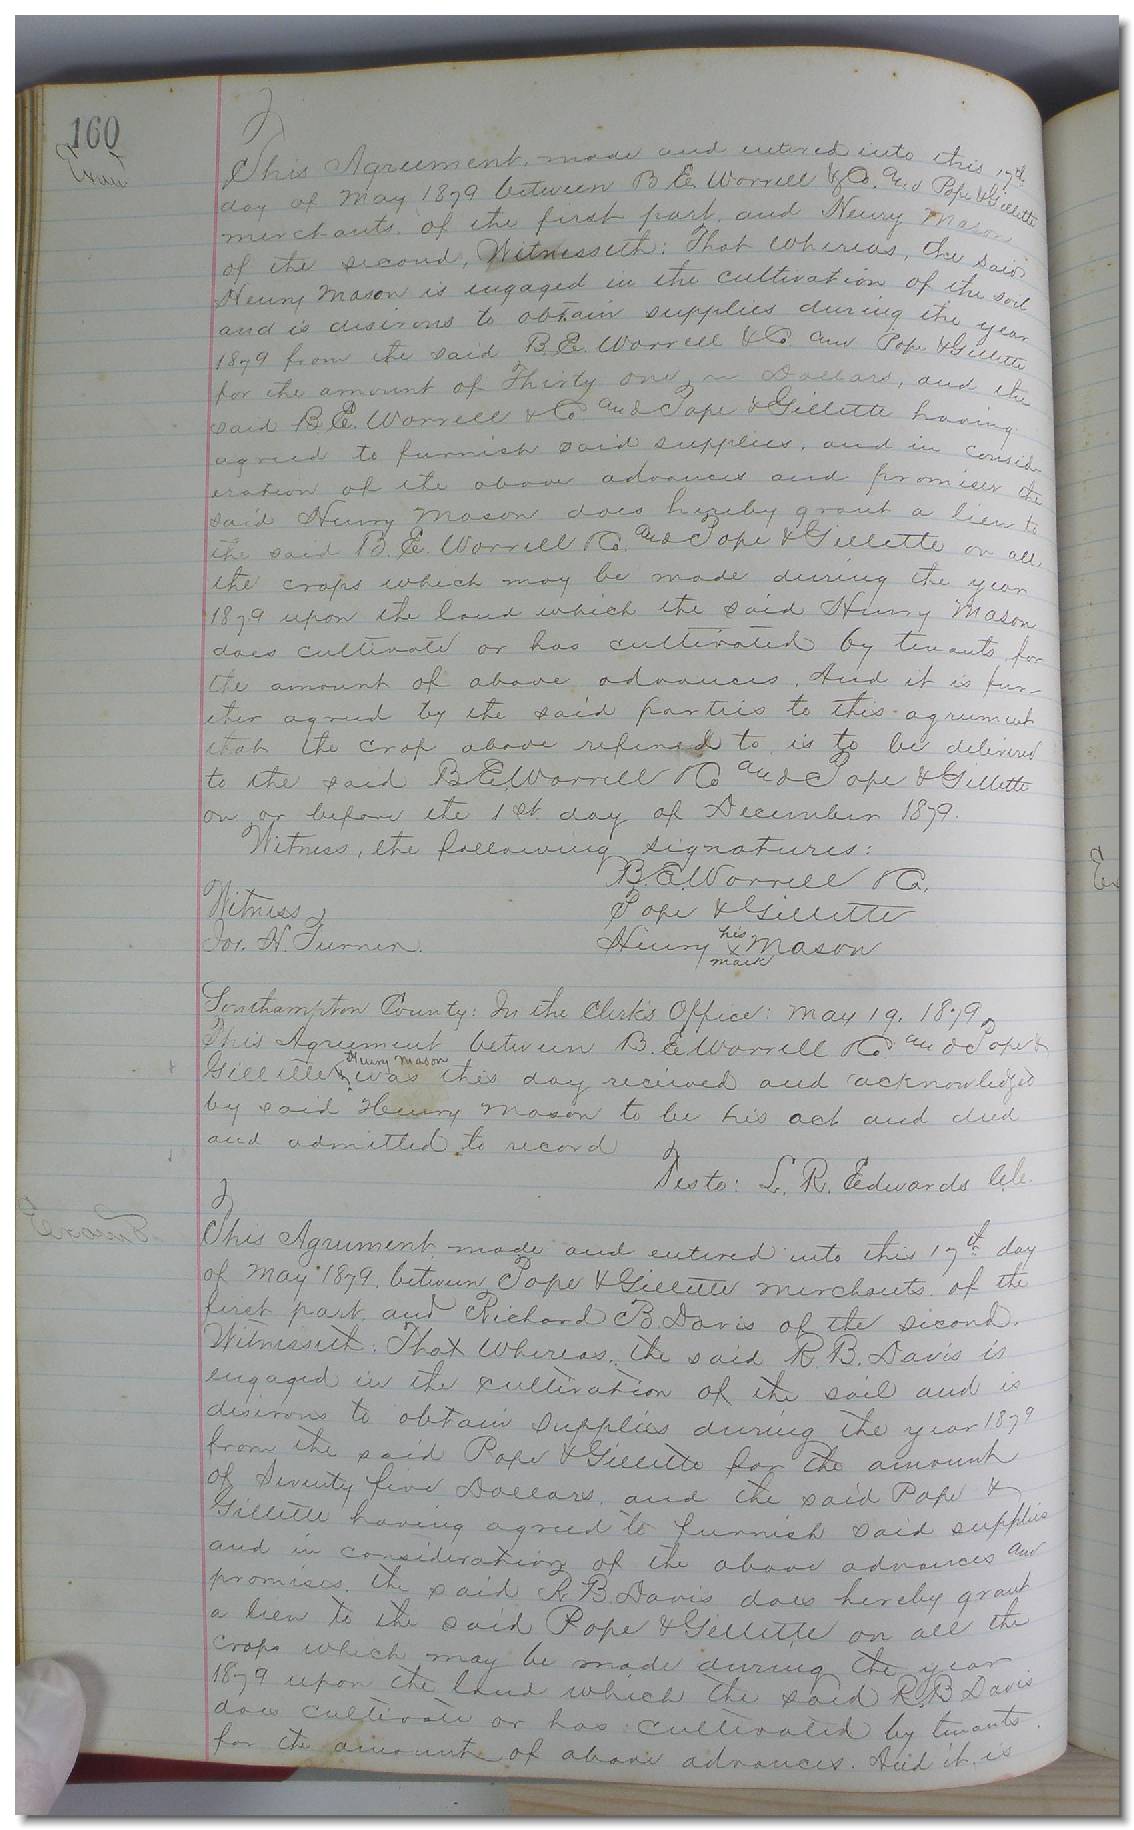 160
This Agreement, made and entered into this 17th
day of May 1879 between B. E. Worrell & Co. and Pope & Gillette
merchants, of the first part, and Henry Mason
of the second, Witnesseth: That whereas, the said
Henry Mason is engaged in the cultivation of the soil
and is desirous to obtain supplies during the year
1879 from the said B. E. Worrell & Co and Pope & Gillette
for the amount of Thirty one Dollars, and the
said B. E. Worrell & Co and Pope & Gillette having
agreed to furnish said supplies, and in consid-
eration of the above advances and promises the
said Henry Mason does hereby grant a lien to
the said B. E. Worrell & Co. and Pope & Gillette on all
the crops which may be made during the year
1879 upon the land which the said Henry Mason
does cultivate or has cultivated by tenants for
the amount of above advances. And it is fur-
ther agreed by the said parties to this agreement
that the crop above refered to is to be delivered
to the said B. E. Worrell & Co and Pope & Gillette
on or before the 1st day of December 1879.
Witness, the following signatures:
B. E. Worrell & Co.
Witness Pope & Gillette
Jos. H. Turner. Henry his x mark Mason
Southampton County: In the Clerk's Office: May 19, 1879.
This Agreement between B. E. Worrell & Co and Pope &
Gillette & Henry Mason was this day received and acknowledged
by said Henry Mason to be his act and deed
and admitted to record
Teste: L. R. Edwards C.C.
This Agreement, made and entered into this 17th day
of May 1879, between Pope & Gillette merchants, of the
first part, and Richard B. Davis of the second.
Witnesseth: That Whereas, the said R. B. Davis is
engaged in the cultivation of the soil and is
desirous to obtain supplies during the year 1879
from the said Pope & Gillette for the amount
of Seventy five Dollars, and the said Pope &
Gillette having agreed to furnish said supplies
and in consideration of the above advances and
promises, the said R. B. Davis does hereby grant
a lien to the said Pope & Gillette on all the
crops which may be made during the year
1879 upon the land which the said R. B Davis
does cultivate or has cultivated by tenants,
for the amount of above advances. And it is